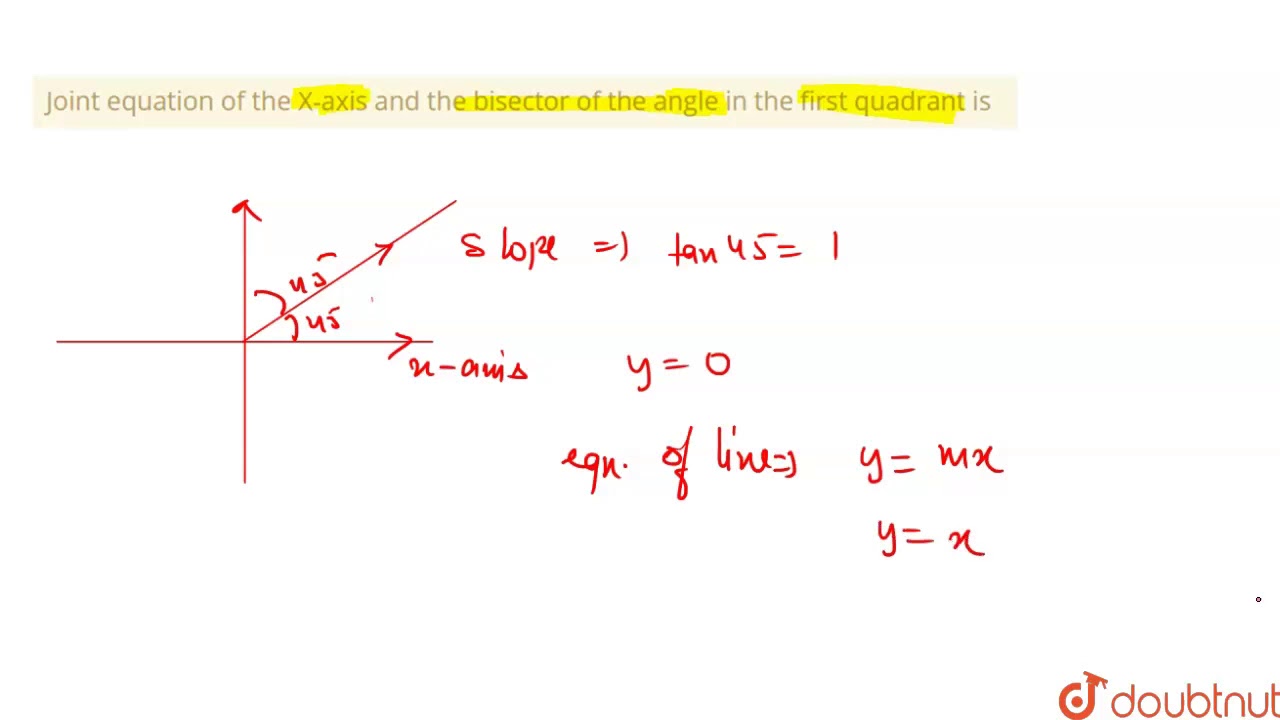 Joint equation of the X-axis and the bisector of the angle in the first quadrant is
slope => tan 45 = 1
45
45
x-axis y = 0
eqn. of line => y = mx
y = x
doubtnut